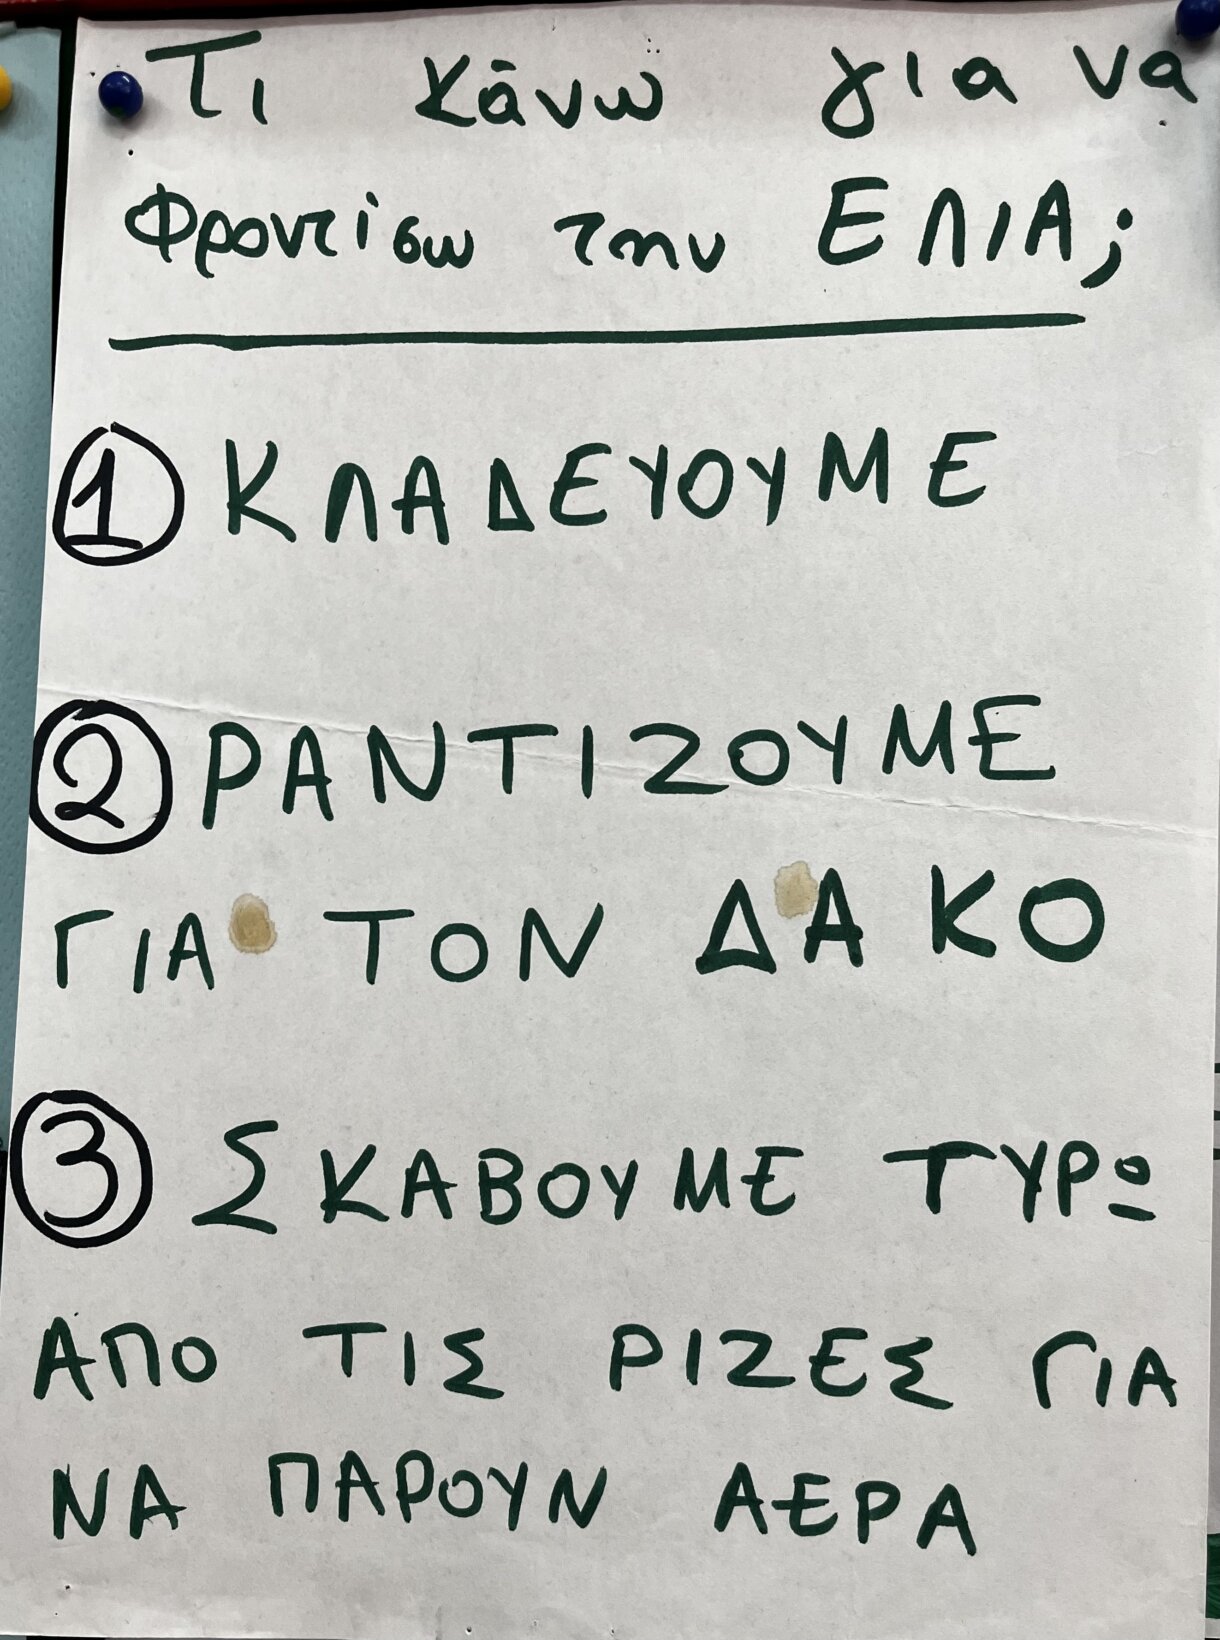 Τι κάνω για να
φροντίσω την ΕΛΙΑ;
1 ΚΛΑΔΕΥΟΥΜΕ
2 ΡΑΝΤΙΖΟΥΜΕ
ΓΙΑ ΤΟΝ ΔΑΚΟ
3 ΣΚΑΒΟΥΜΕ ΤΥΡΩ
ΑΠΟ ΤΙΣ ΡΙΖΕΣ ΓΙΑ
ΝΑ ΠΑΡΟΥΝ ΑΕΡΑ